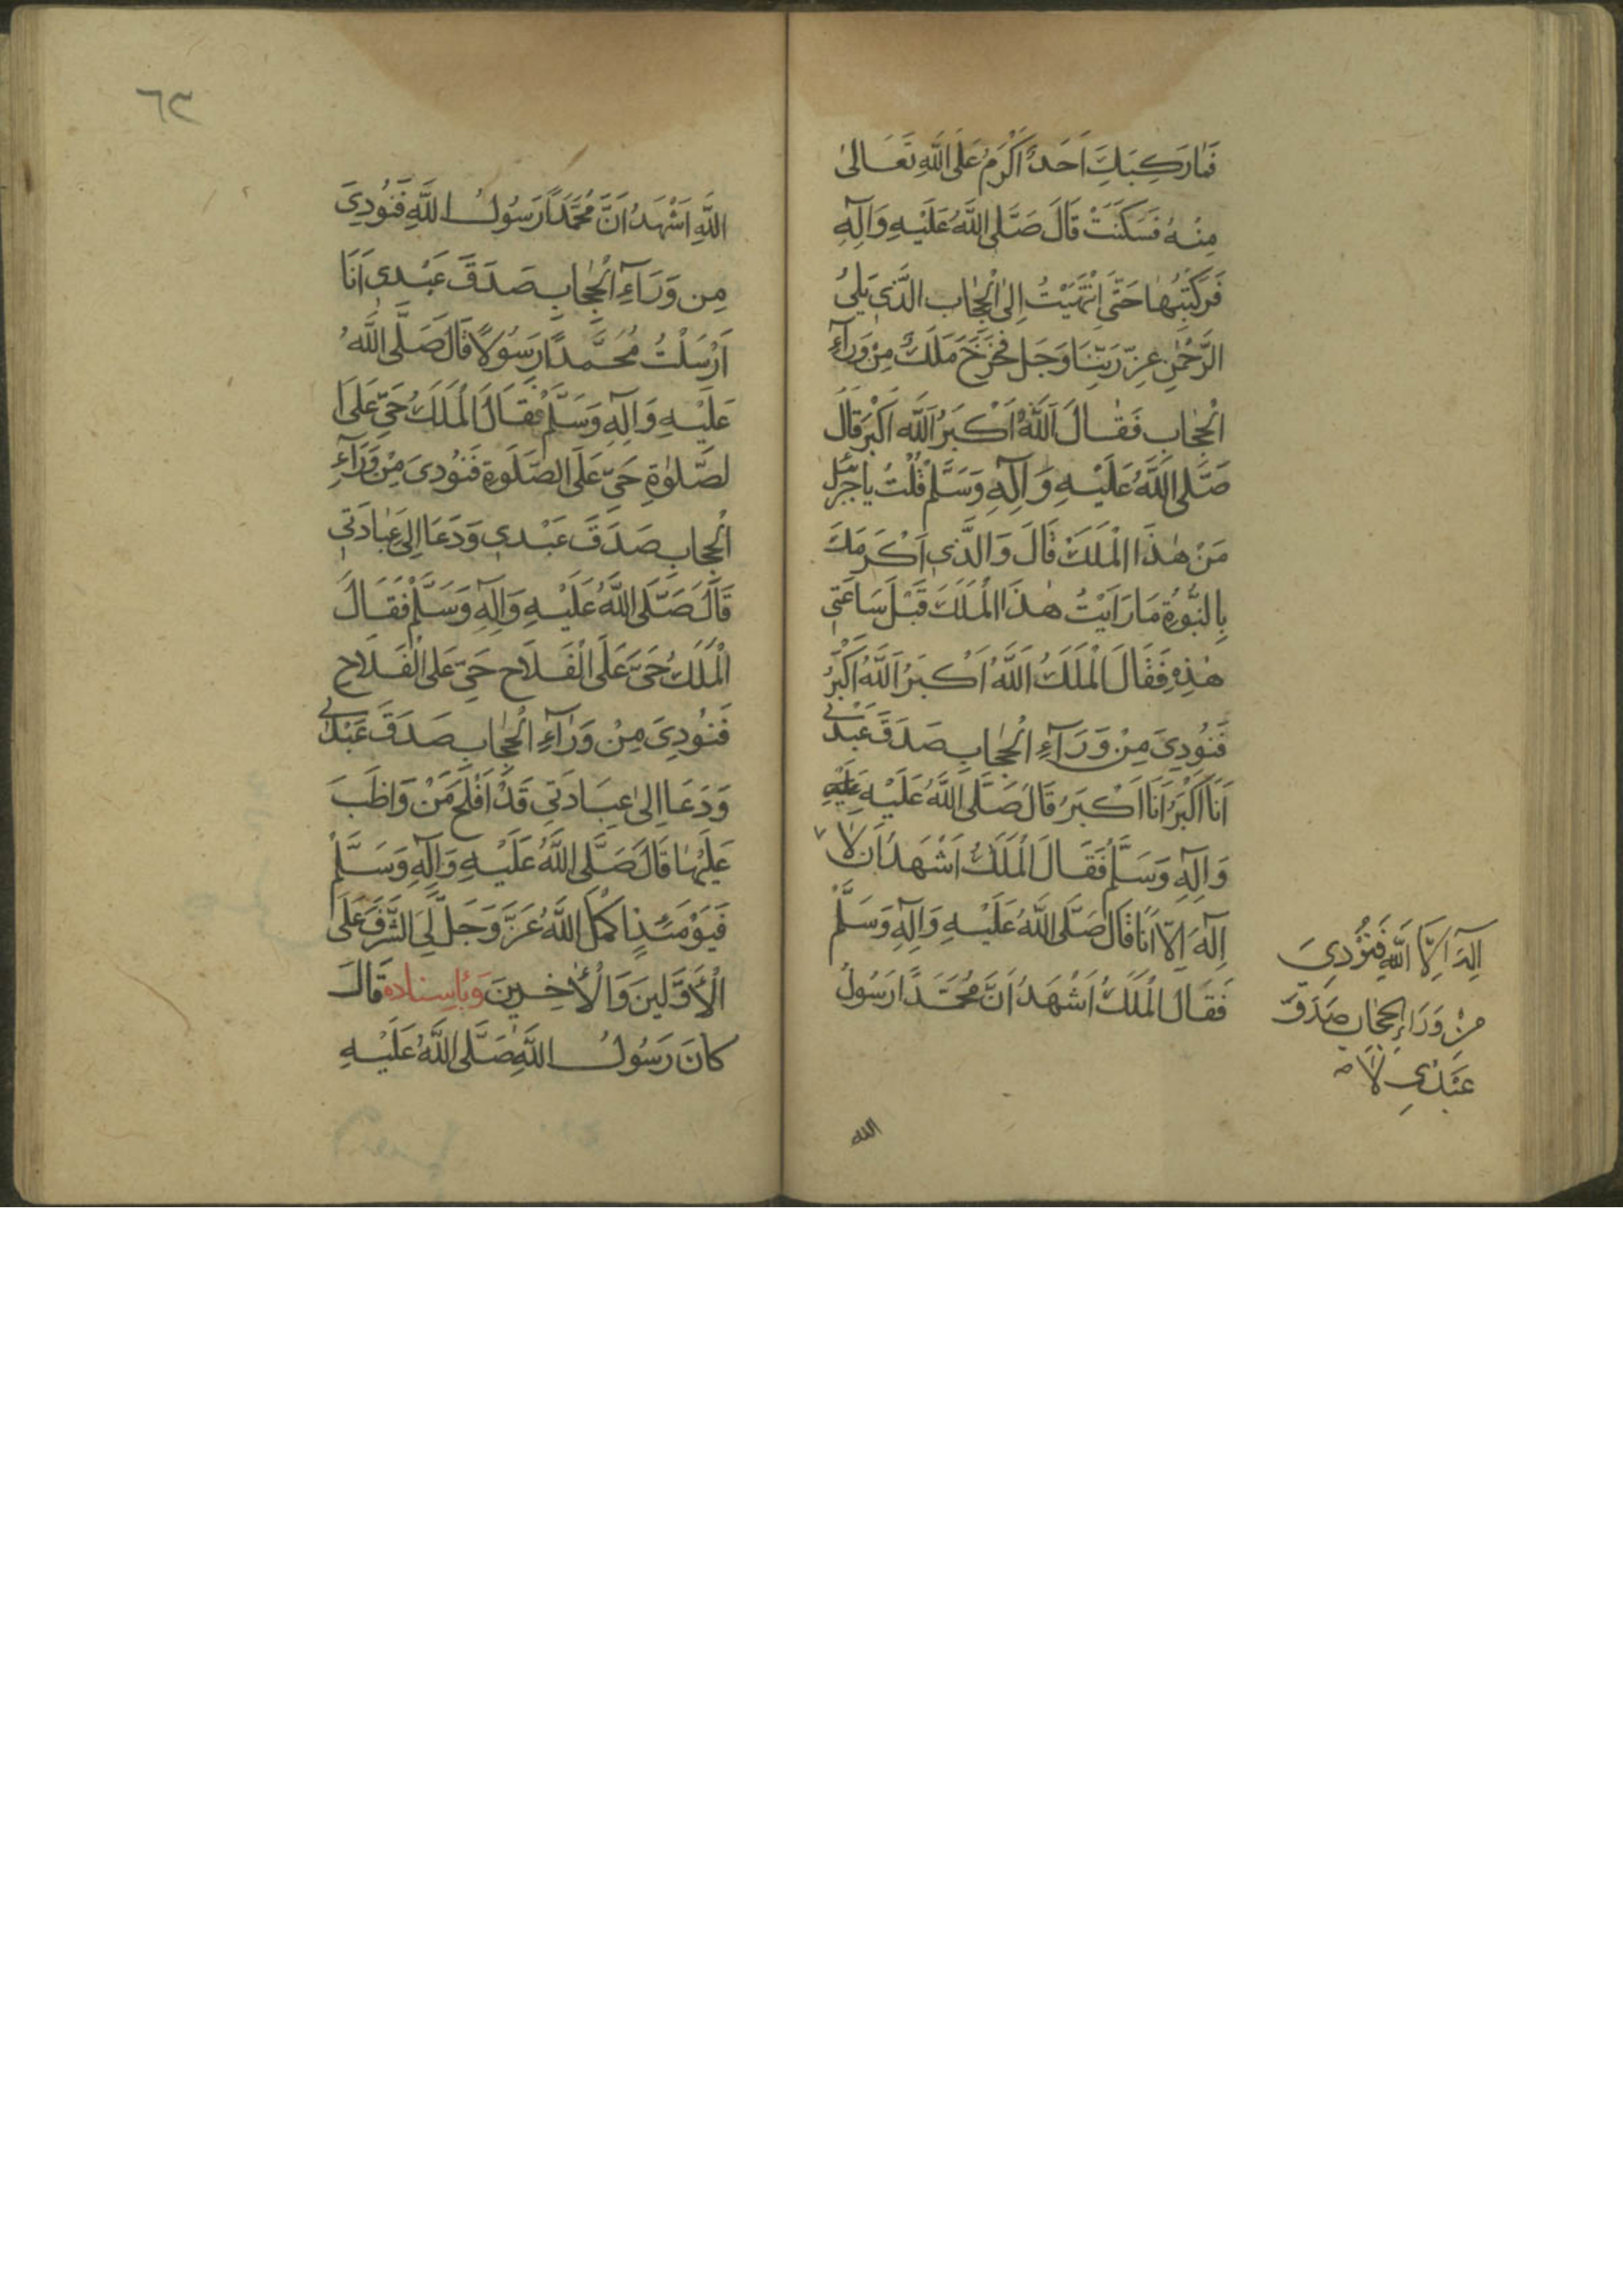 فَمَا رَكِبَكِ اَحَدٌ اَكْرَمُ عَلَى اللّٰهِ تَعَالىٰ
مِنْهُ فَسَكَنَتْ قَالَ صَلَّى اللّٰهُ عَلَيْهِ وَآلِهِ
فَرَكِبْتُهَا حَتّٰى اِنْتَهَيْتُ اِلىٰ الْحِجَابِ الَّذِي يَلِي
الرَّحْمٰنِ عِزّ رَبِّنَا وَجَل فَخَرَجَ مَلَكٌ مِنْ وَرَآءِ
الْحِجَابِ فَقَالَ اَللّٰهُ اَكْبَرُ اَللّٰه اَكْبَرْ قَالَ
صَلَّى اللّٰهُ عَلَيْهِ وَآلِهِ وَسَلَّمْ قُلْتُ يَا جِبْرَئِل
مَنْ هٰذَا الْمَلَكْ قَالَ وَالَّذِي اَكْرَمَكَ
بِالنُّبُوَّةِ مَا رَاَيْتُ هٰذَا الْمَلَكَ قَبْلَ سَاعَتِي
هٰذِهِ فَقَالَ الْمَلَكُ اَللّٰهُ اَكْبَرُ اَللّٰهُ اَكْبَرُ
فَنُودِيَ مِنْ وَرَآءِ الْحِجَابِ صَدَقَ عَبْدِي
اَنَا اَكْبَرُ اَنَا اَكْبَرُ قَالَ صَلَّى اللّٰهُ عَلَيْهِ
وَآلِهِ وَسَلَّمْ فَقَالَ الْمَلَكُ اَشْهَدُ اَن لَا ٧
اِلٰهَ اِلّا اَنَا قَالَ صَلَّى اللّٰهُ عَلَيْهِ وَآلِهِ وَسَلَّمْ
فَقَالَ الْمَلَكُ اَشْهَدُ اَنَّ مُحَمَّدًا رَسُولُ
الله
اِلٰهَ اِلَّا اللّٰه فَنُودِيَ
مِنْ وَرَاءِ الحِجَابِ صَدَقَ
عَبْدِي لَا
٦٣
اللّٰهِ اَشْهَدُ اَنَّ مُحَمَّدًا رَسُولُ اللّٰهِ فَنُودِيَ
مِن وَرَآءِ الْحِجَابِ صَدَقَ عَبْدِى اَنَا
اَرْسَلْتُ مُحَمَّدًا رَسُولًا قَالَ صَلَّى اللّٰهُ
عَلَيْهِ وَآلِهِ وَسَلَّمْ فَقَالَ الْمَلَكُ حَيّ عَلَى ا
لصَّلٰوةِ حَيّ عَلَى الصَّلٰوةِ فَنُودِىَ مِنْ وَرَآءِ
الْحِجَابِ صَدَقَ عَبْدِي وَدَعَا اِلىٰ عِبَادَتِي
قَالَ صَلَّى اللّٰهُ عَلَيْهِ وَآلِهِ وَسَلَّمْ فَقَالَ
الْمَلَكُ حَيَّ عَلَى الْفَلَاحِ حَيّ عَلَى الْفَلَاحِ
فَنُودِيَ مِنْ وَرَآءِ الْحِجَابِ صَدَقَ عَبْدِي
وَدَعَا اِلىٰ عِبَادَتِي قَدْ اَفْلَحَ مَنْ وَاظَبَ
عَلَيْهَا قَالَ صَلَّى اللّٰهُ عَلَيْهِ وَآلِهِ وَسَلَّمْ
فَيَوْمَئِذٍ اَكْمَلَ اللّٰهُ عَزَّ وَجَلَّ لِيَ الشَّرَفَ عَلَى
الْاَوَّلِينَ وَالْاٰخِرِينَ وَبِاِسنادِه قَالَ
كَانَ رَسُولُ اللّٰهِ صَلَّى اللّٰهُ عَلَيْهِ